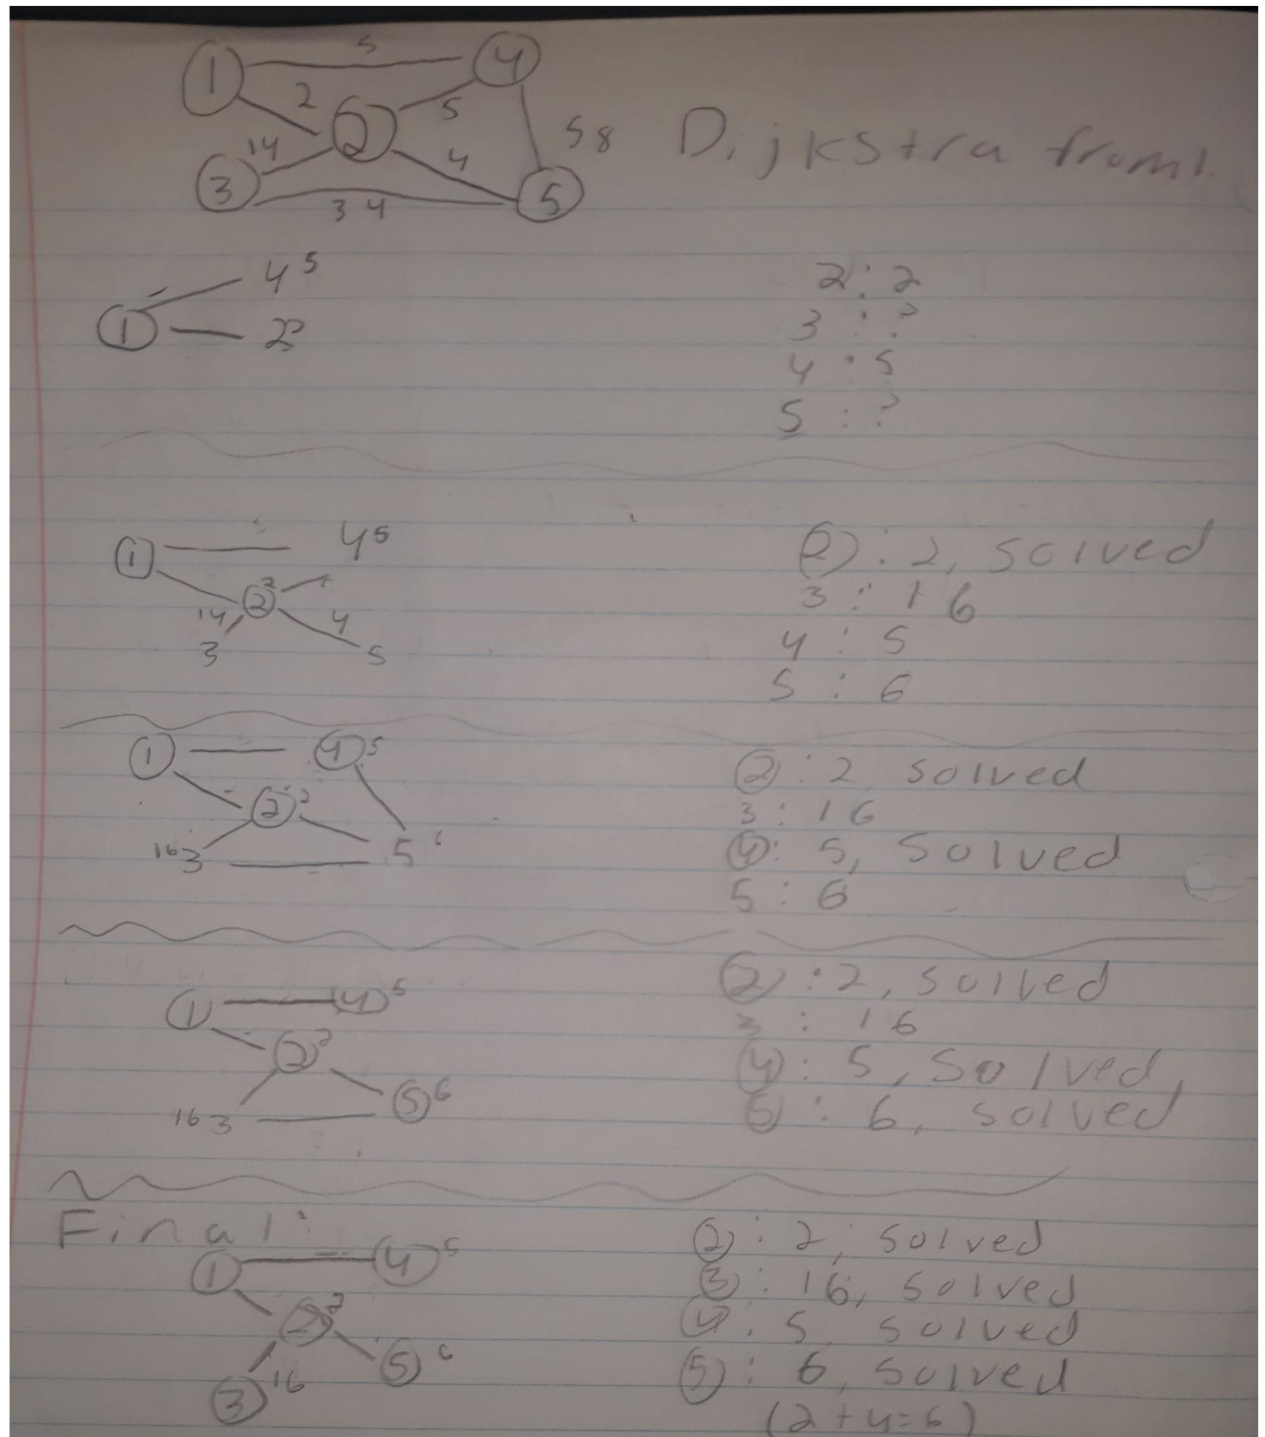 5
1 4
2 2 5 58 Dijkstra from 1.
14 4
3 34 5
4 5
1 2 2
2 : 2
3 : ?
4 : 5
5 : ?
1 4 5
2 2
14 4
3 5
2 : 2, solved
3 : 16
4 : 5
5 : 6
1 4 5
2 2
16 3 5 6
2 : 2 solved
3 : 16
4 : 5, solved
5 : 6
1 4 5
2 2
16 3 5 6
2 : 2, solved
3 : 16
4 : 5, solved,
5 : 6, solved
Final:
1 4 5
2 2
3 16 5 6
2 : 2, solved
3 : 16, solved
4 . 5 solved
5 : 6, solved
(2+4=6)